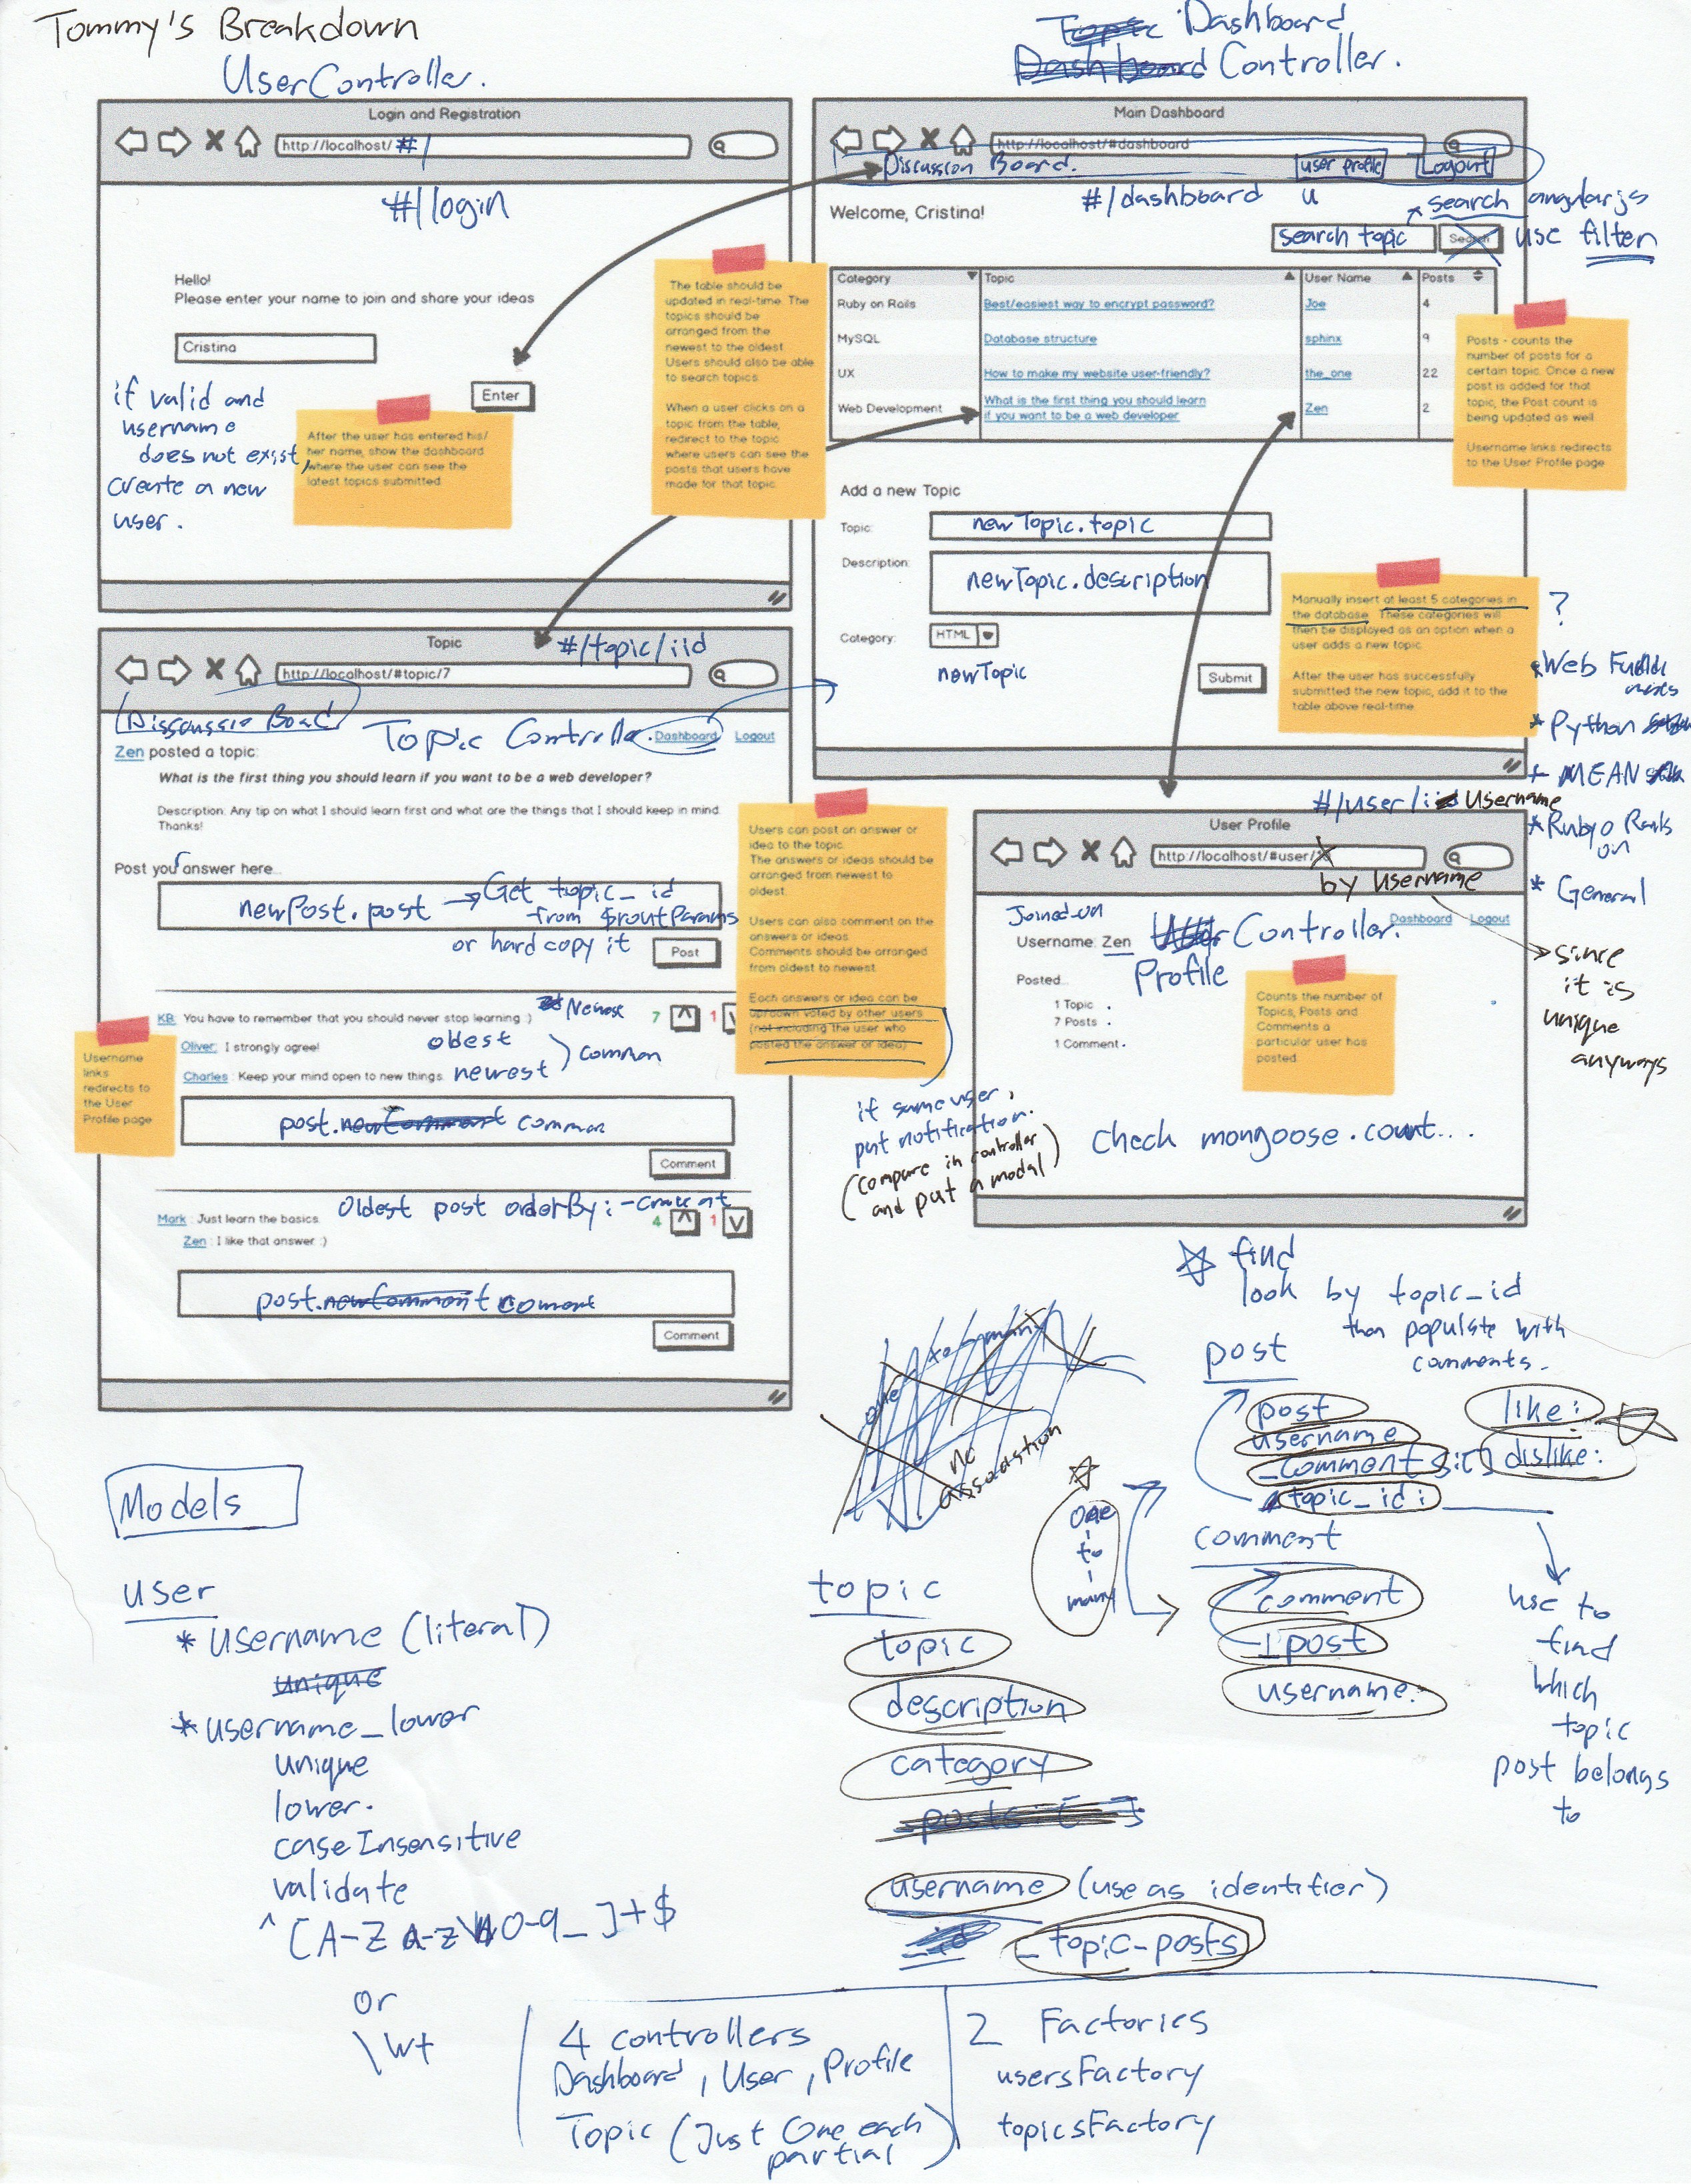 Tommy's Breakdown
UserController.
Login and Registration
http://localhost/ #/
#/login
Hello!
Please enter your name to join and share your ideas
Cristina
Enter
if valid and
username
does not exist,
create a new
user.
After the user has entered his/
her name, show the dashboard
where the user can see the
latest topics submitted.
The table should be
updated in real-time. The
topics should be
arranged from the
newest to the oldest.
Users should also be able
to search topics.
When a user clicks on a
topic from the table,
redirect to the topic
where users can see the
posts that users have
made for that topic.
Topic Dashboard
Dashboard Controller.
Main Dashboard
http://localhost/#dashboard
Discussion Board.
user profile
Logout
#/dashboard
u
search angularjs
use filter
Welcome, Cristina!
search topic
Search
Category Topic User Name Posts
Ruby on Rails Best/easiest way to encrypt password? Joe 4
MySQL Database structure sphinx 9
UX How to make my website user-friendly? the_one 22
Web Development What is the first thing you should learn
if you want to be a web developer Zen 2
Posts - counts the
number of posts for a
certain topic. Once a new
post is added for that
topic, the Post count is
being updated as well.
Username links redirects
to the User Profile page
Add a new Topic
Topic: newTopic.topic
Description: newTopic.description
Category: HTML
newTopic
Submit
Manually insert at least 5 categories in
the database. These categories will
then be displayed as an option when a
user adds a new topic.
After the user has successfully
submitted the new topic, add it to the
table above real-time.
?
* Web
* Python
* MEAN
* Ruby o Rails
on
* General
Topic
#/topic/iid
http://localhost/#topic/7
Discussio Board
Topic Controller.
Dashboard Logout
Zen posted a topic:
What is the first thing you should learn if you want to be a web developer?
Description: Any tip on what I should learn first and what are the things that I should keep in mind.
Thanks!
Post you r answer here...
newPost.post → Get topic_id
from $routParams
or hard copy it
Post
KB: You have to remember that you should never stop learning :) Newest 7 1
Oliver: I strongly agree! oldest
Charles: Keep your mind open to new things. newest
common
post.newComment common
Comment
Oldest post orderBy:
Mark : Just learn the basics. 4 1
Zen : I like that answer :)
post.newComment coment
Comment
Username
links
redirects to
the User
Profile page
Users can post an answer or
idea to the topic.
The answers or ideas should be
arranged from newest to
oldest.
Users can also comment on the
answers or ideas.
Comments should be arranged
from oldest to newest.
Each answers or idea can be
up/down voted by other users
(not including the user who
posted the answer or idea)
if same user,
put notification.
(compare in controller
and put a modal)
#/user/iid Username
User Profile
http://localhost/#user/
by Username
since
it is
unique
anyways
Joined-on
Dashboard Logout
Username: Zen
User Controller.
Profile
Posted...
1 Topic
7 Posts
1 Comment
Counts the number of
Topics, Posts and
Comments a
particular user has
posted.
check mongoose.count...
☆ find
look by topic_id
than populate with
comments.
one
to many
no
association
post
post
username
_comments:[]
topic_id:
like:
dislike:
use to
find
which
topic
post belongs
to
one
to
many
comment
comment
_post
username
Models
user
* username (literal)
unique
* username_lower
unique
lower.
caseInsensitive
validate
^[A-Z a-z 0-9_]+$
or
\w+
topic
topic
description
category
_posts: [ ]
username (use as identifier)
_id _topic-posts
4 controllers
Dashboard, User, Profile
Topic (Just One each
partial)
2 Factories
usersFactory
topicsFactory